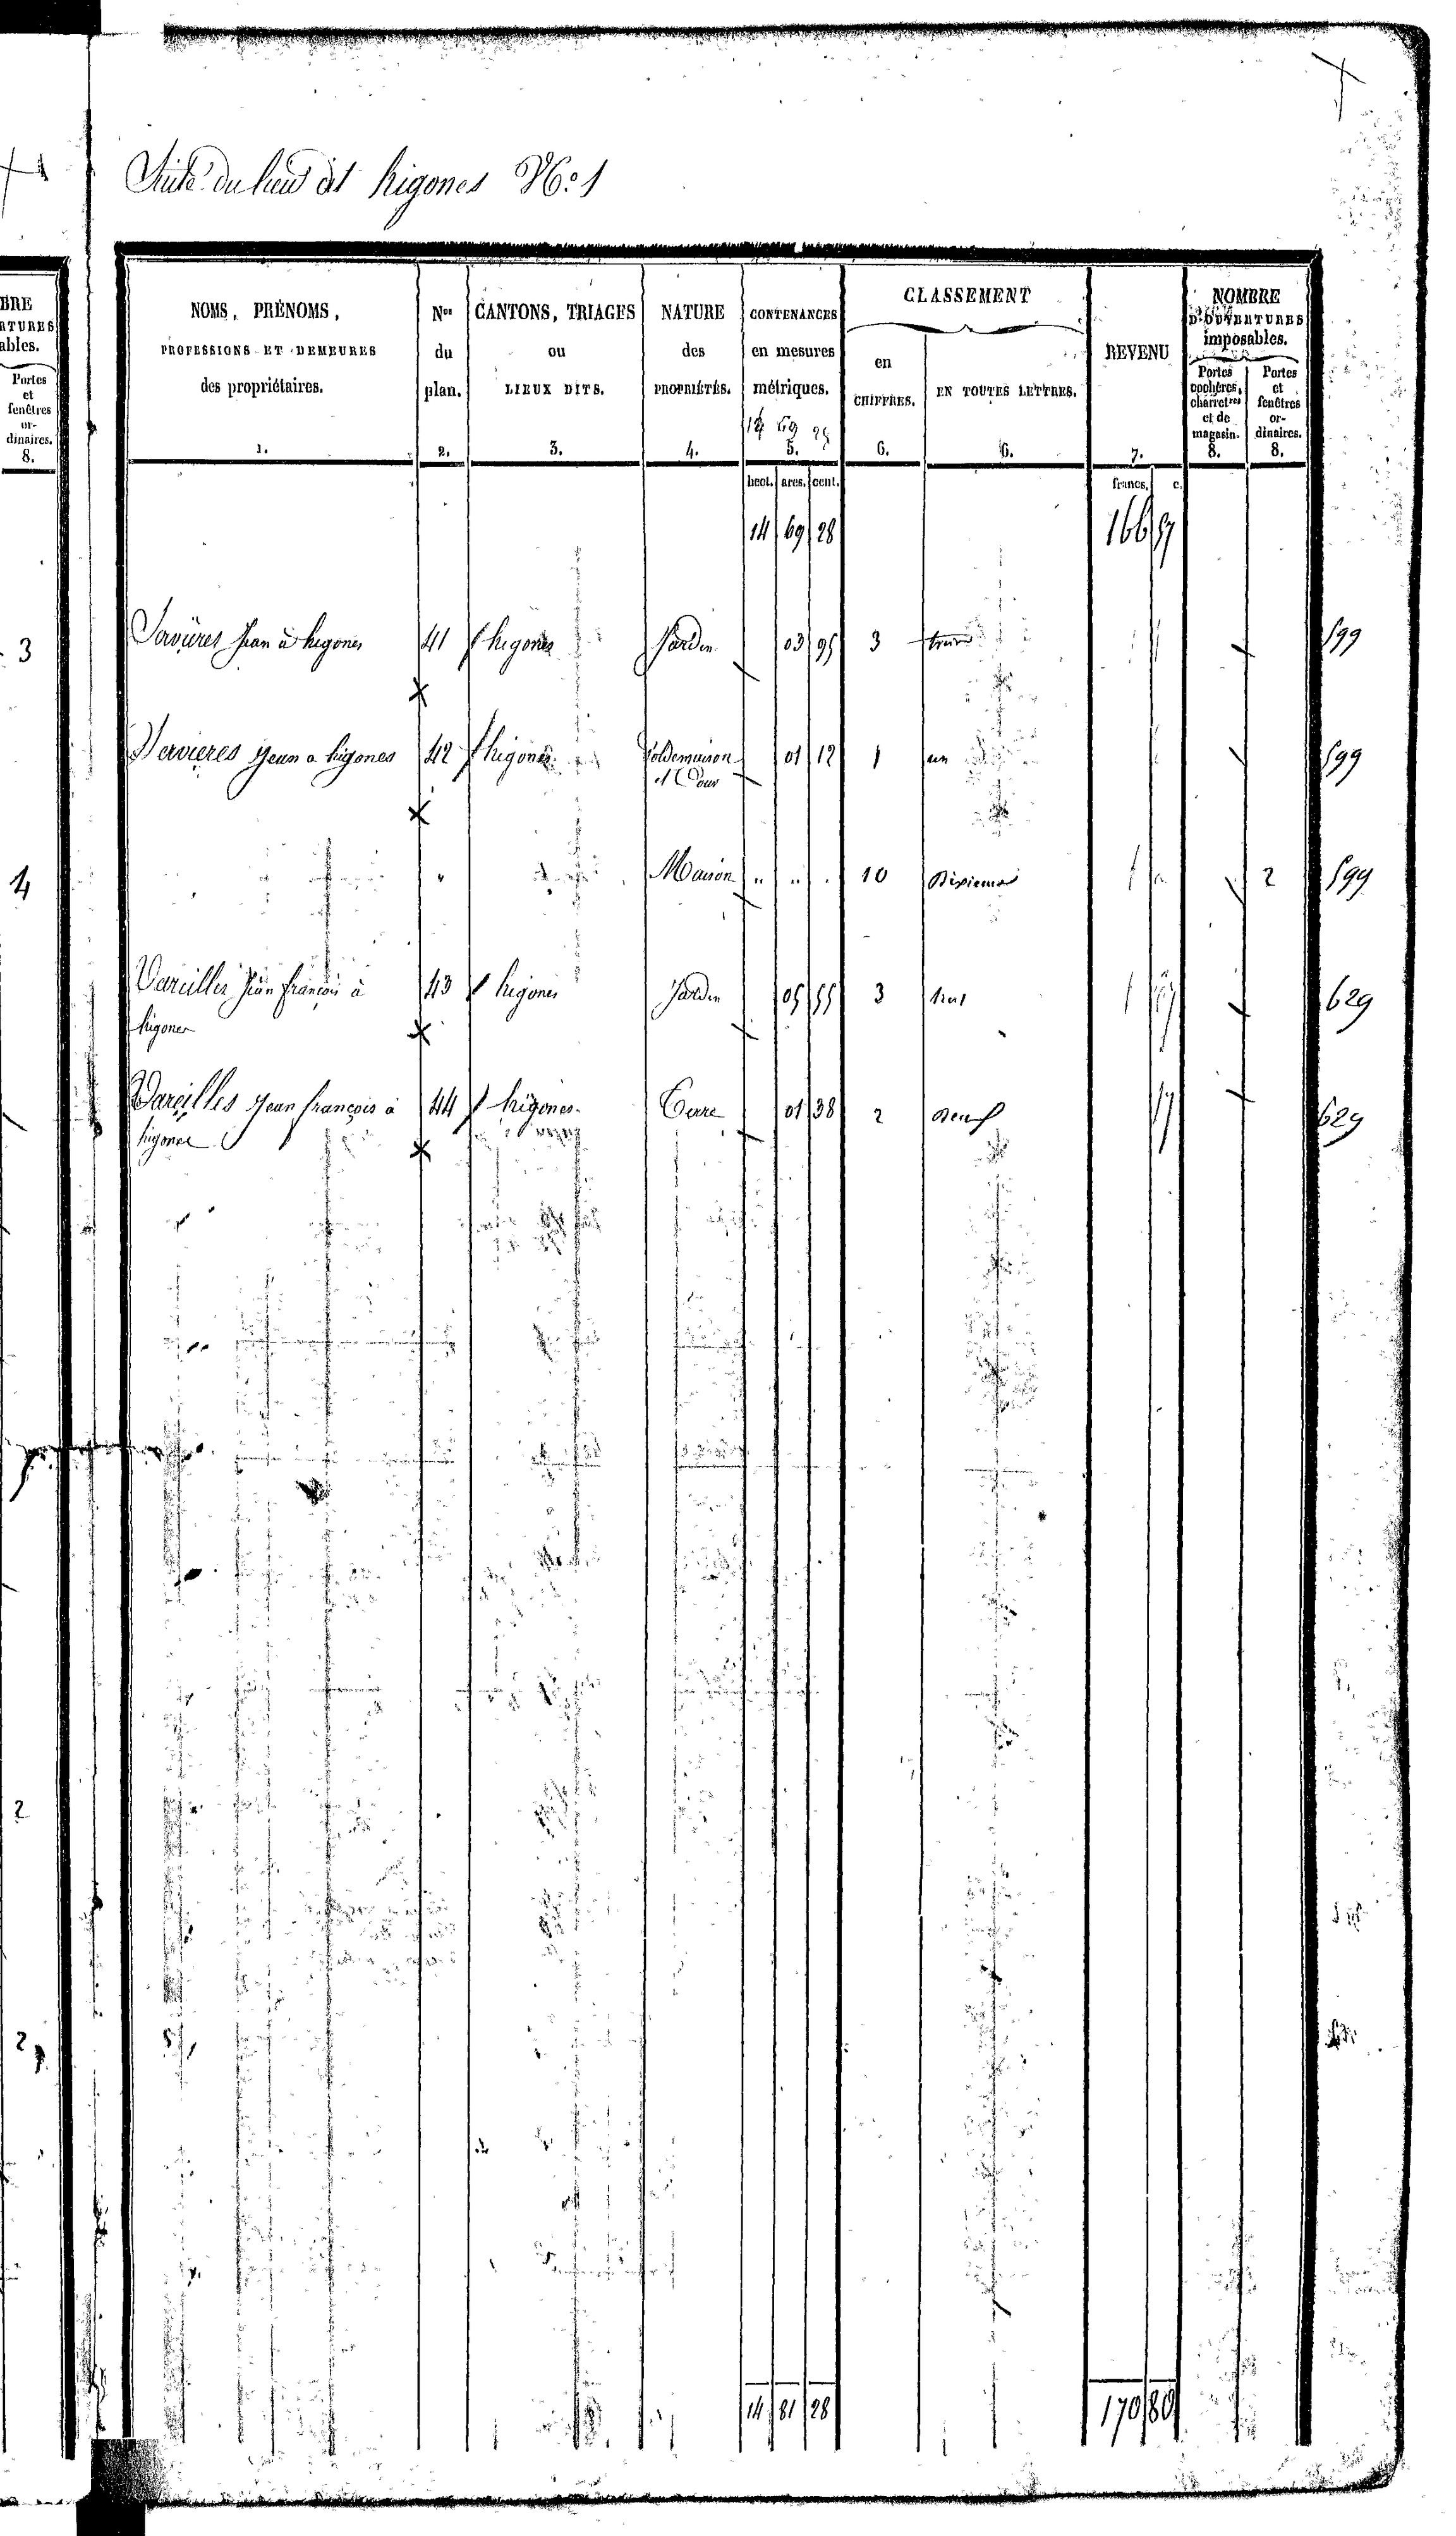 Suite du lieu dit higones No. 1
BRE
RTURES
ables.
Portes
et
fenêtres
or-
dinaires.
8.
3
4
2
2
NOMS, PRÉNOMS,
PROFESSIONS ET DEMEURES
des propriétaires.
1.
Nos
du
plan.
2.
CANTONS, TRIAGES
ou
LIEUX DITS.
3.
NATURE
des
PROPRIÉTÉS.
4.
CONTENANCES
en mesures
métriques.
5.
CLASSEMENT
en
CHIFFRES.
6.
EN TOUTES LETTRES.
6.
REVENU
7.
NOMBRE
D'OUVERTURES
imposables.
Portes
cochères,
charretres
et de
magasin.
8.
Portes
et
fenêtres
or-
dinaires.
8.
hect. ares. cent. francs. c.
14 69 28 166 57
Servières Jean à higones 41 higones Jardin 03 95 3 trois 599
Servieres Jean a higones 42 higones Sol de maison 01 12 1 un 599
et Cour
" Maison " " " 10 Dixieme 2 599
Vareilles Jean françois à 43 higones Jardin 05 55 3 trois 1 629
higones
Vareilles Jean françois à 44 higones Terre 01 38 2 Deux 629
higones
14 81 28 170 80